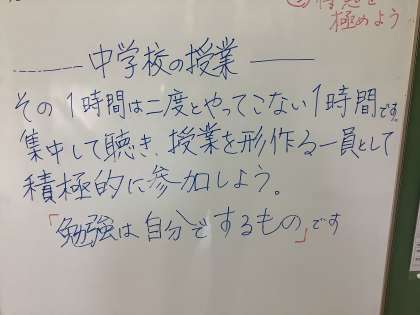 を
極めよう
中学校の授業
その1時間は二度とやってこない1時間です。
集中して聴き、授業を形作る一員として
積極的に参加しよう。
「勉強は自分でするもの」です